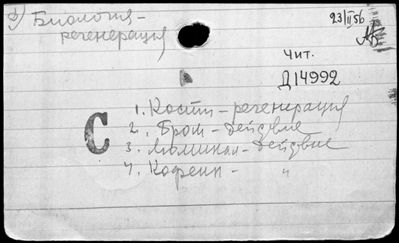 з) Биология –
регенерация
23/II 56
Чит.
Д14992
С
1. Кости – регенерация
2. Бром – действие
3. Люминал – действие
4. Кофеин – "